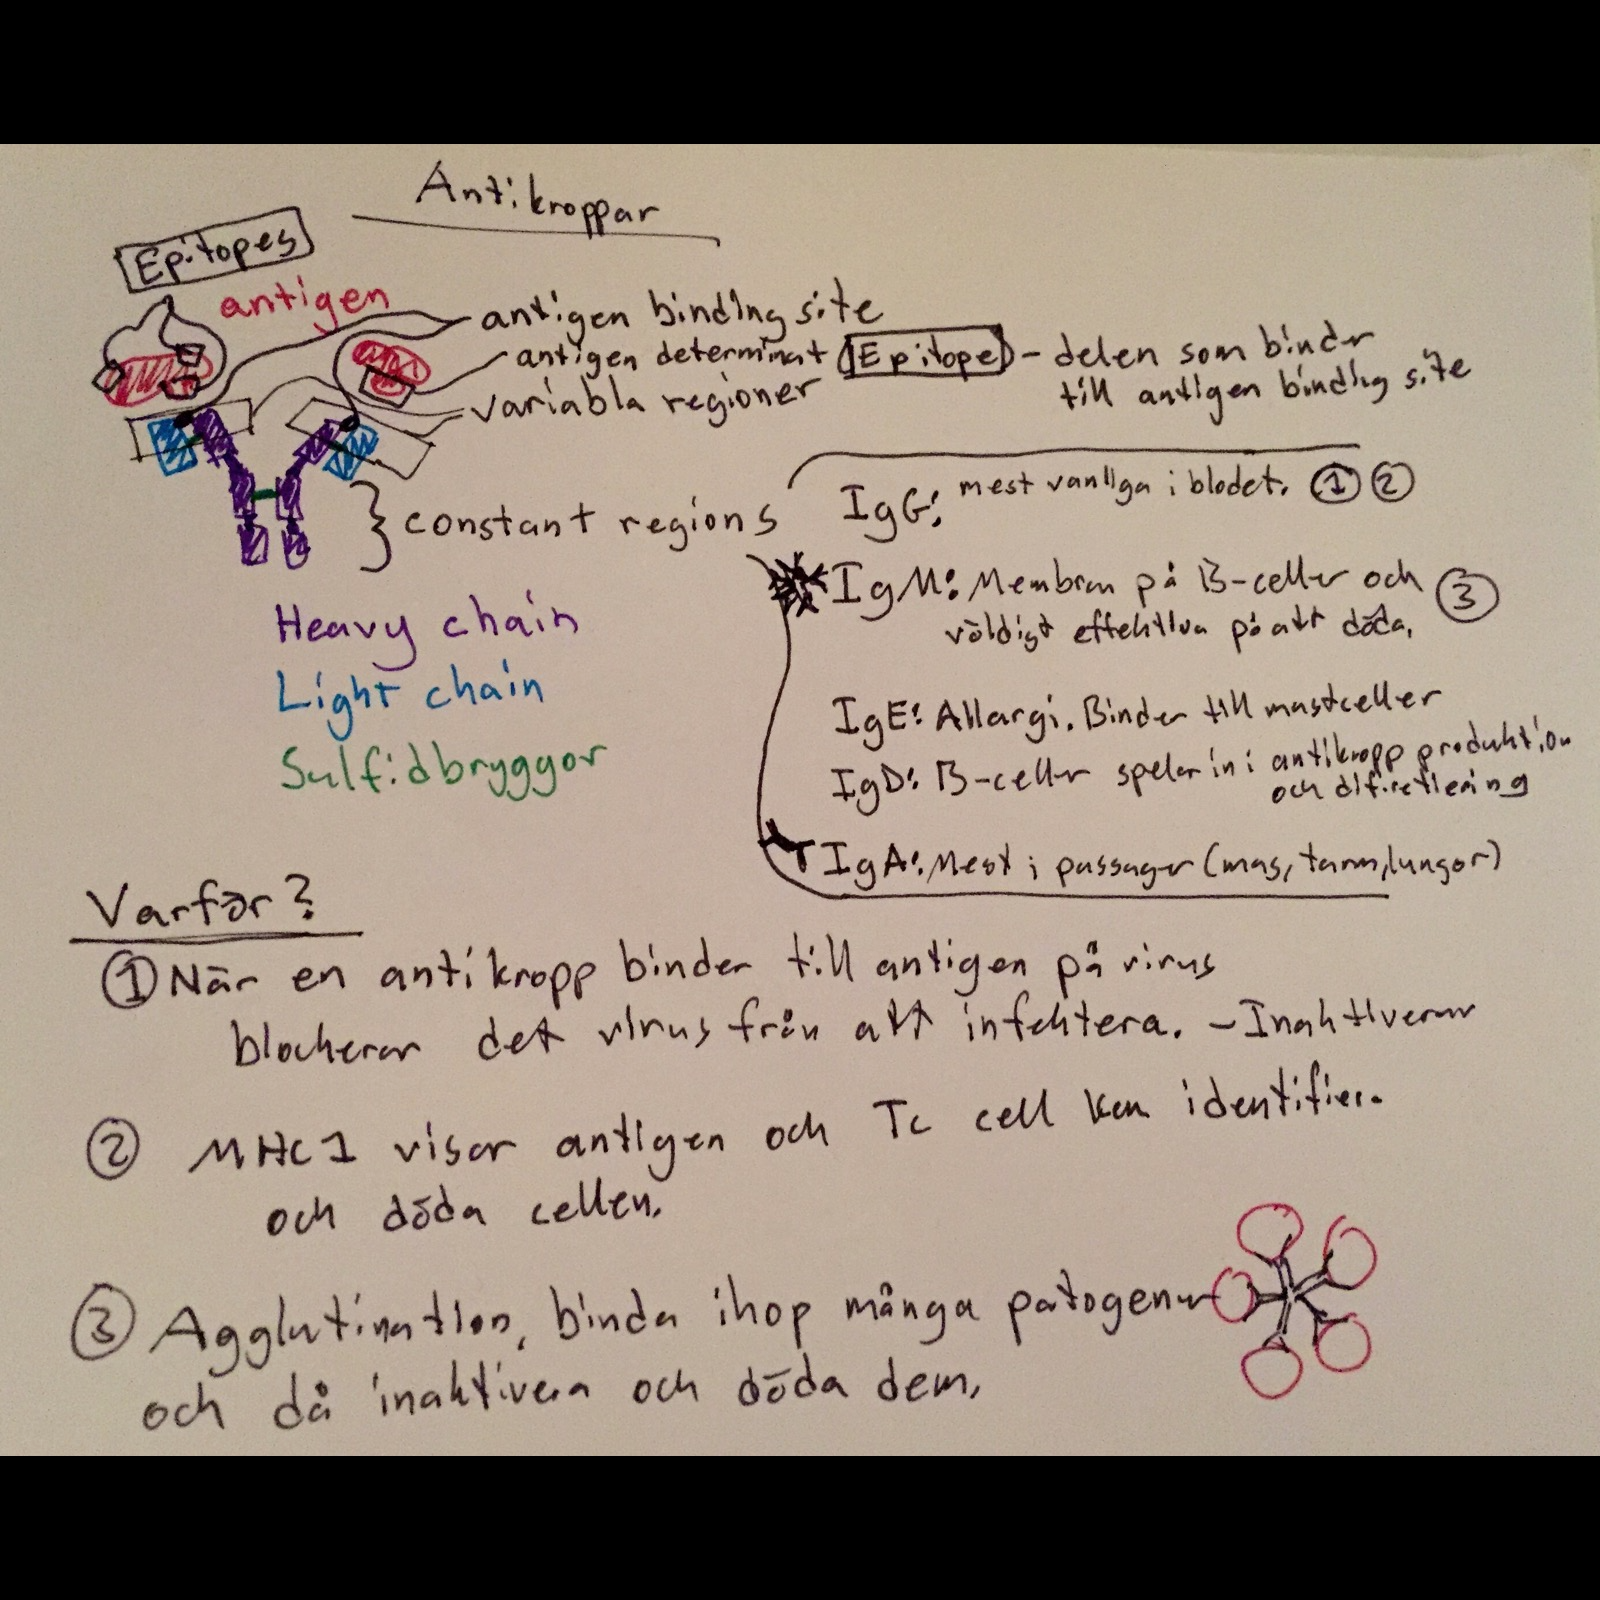 Antikroppar
Epitopes
antigen
antigen binding site
antigen determinat (Epitope) - delen som binder
till antigen binding site
variabla regioner
} constant regions
Heavy chain
Light chain
Sulfidbryggor
IgG: mest vanliga i blodet. ① ②
IgM: Membran på B-celler och ③
väldigt effektiva på att döda.
IgE: Allergi. Binder till mastceller
IgD: B-celler spelar in i antikropp produktion
och
IgA: Mest i passager (mag, tarm, lungor)
Varför?
① När en antikropp binder till antigen på virus
blockerar det virus från att infektera. - Inaktiverar
② MHC I visar antigen och Tc cell kan identifier.
och döda cellen.
③ Agglutination, binda ihop många patogener
och då inaktivera och döda dem.